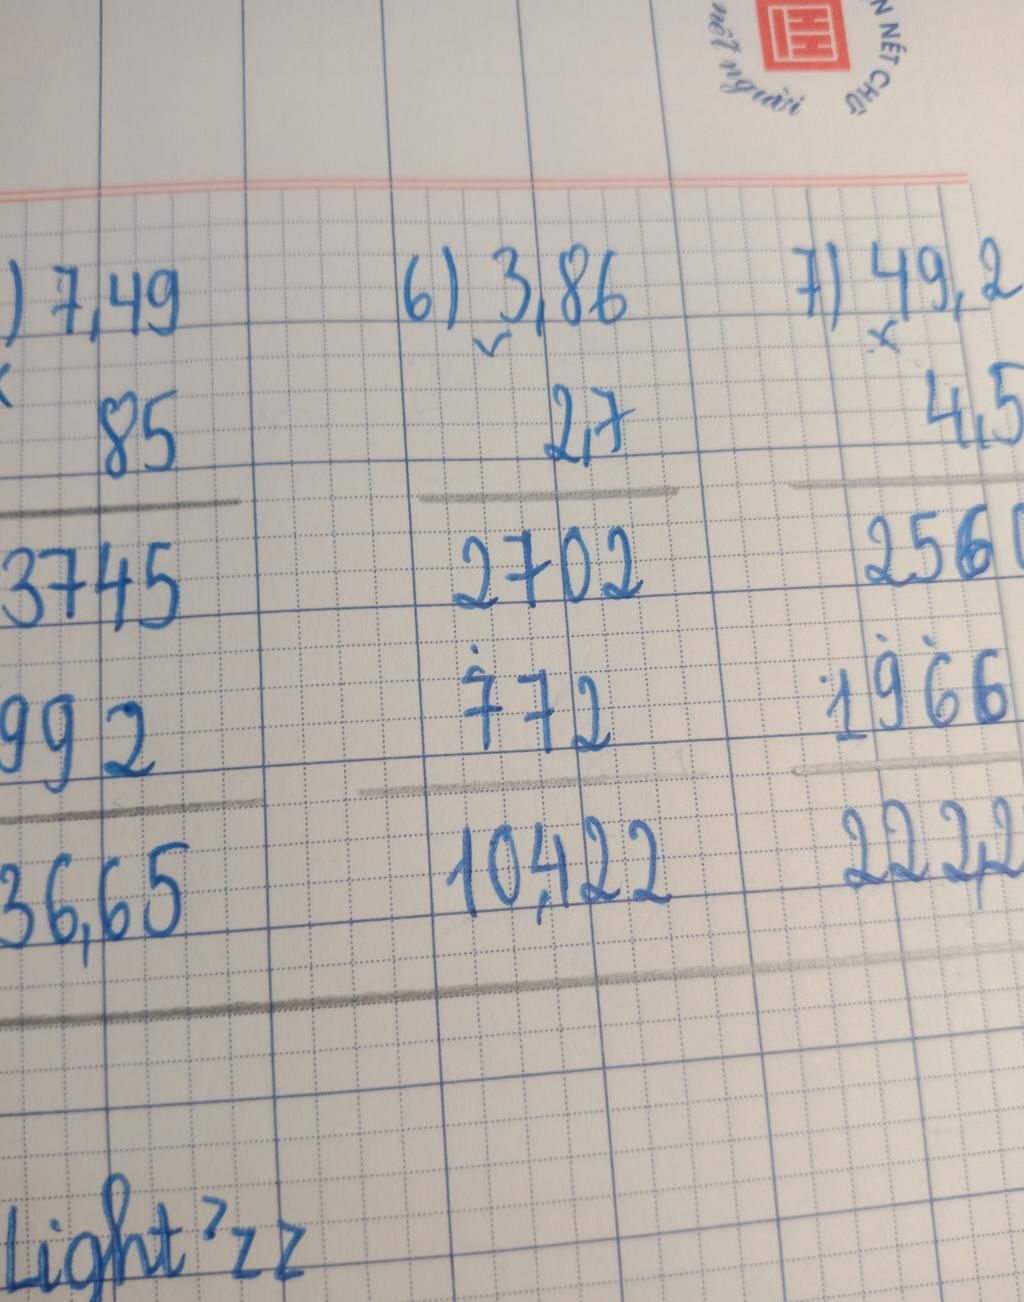 nết người
N NÉT CHỮ
) 7,49 6) 3,86 7) 49,2
x x x
85 2,7 4,5
3745 2702 2560
992 772 1966
36,65 10,422 222,2
Light'zz